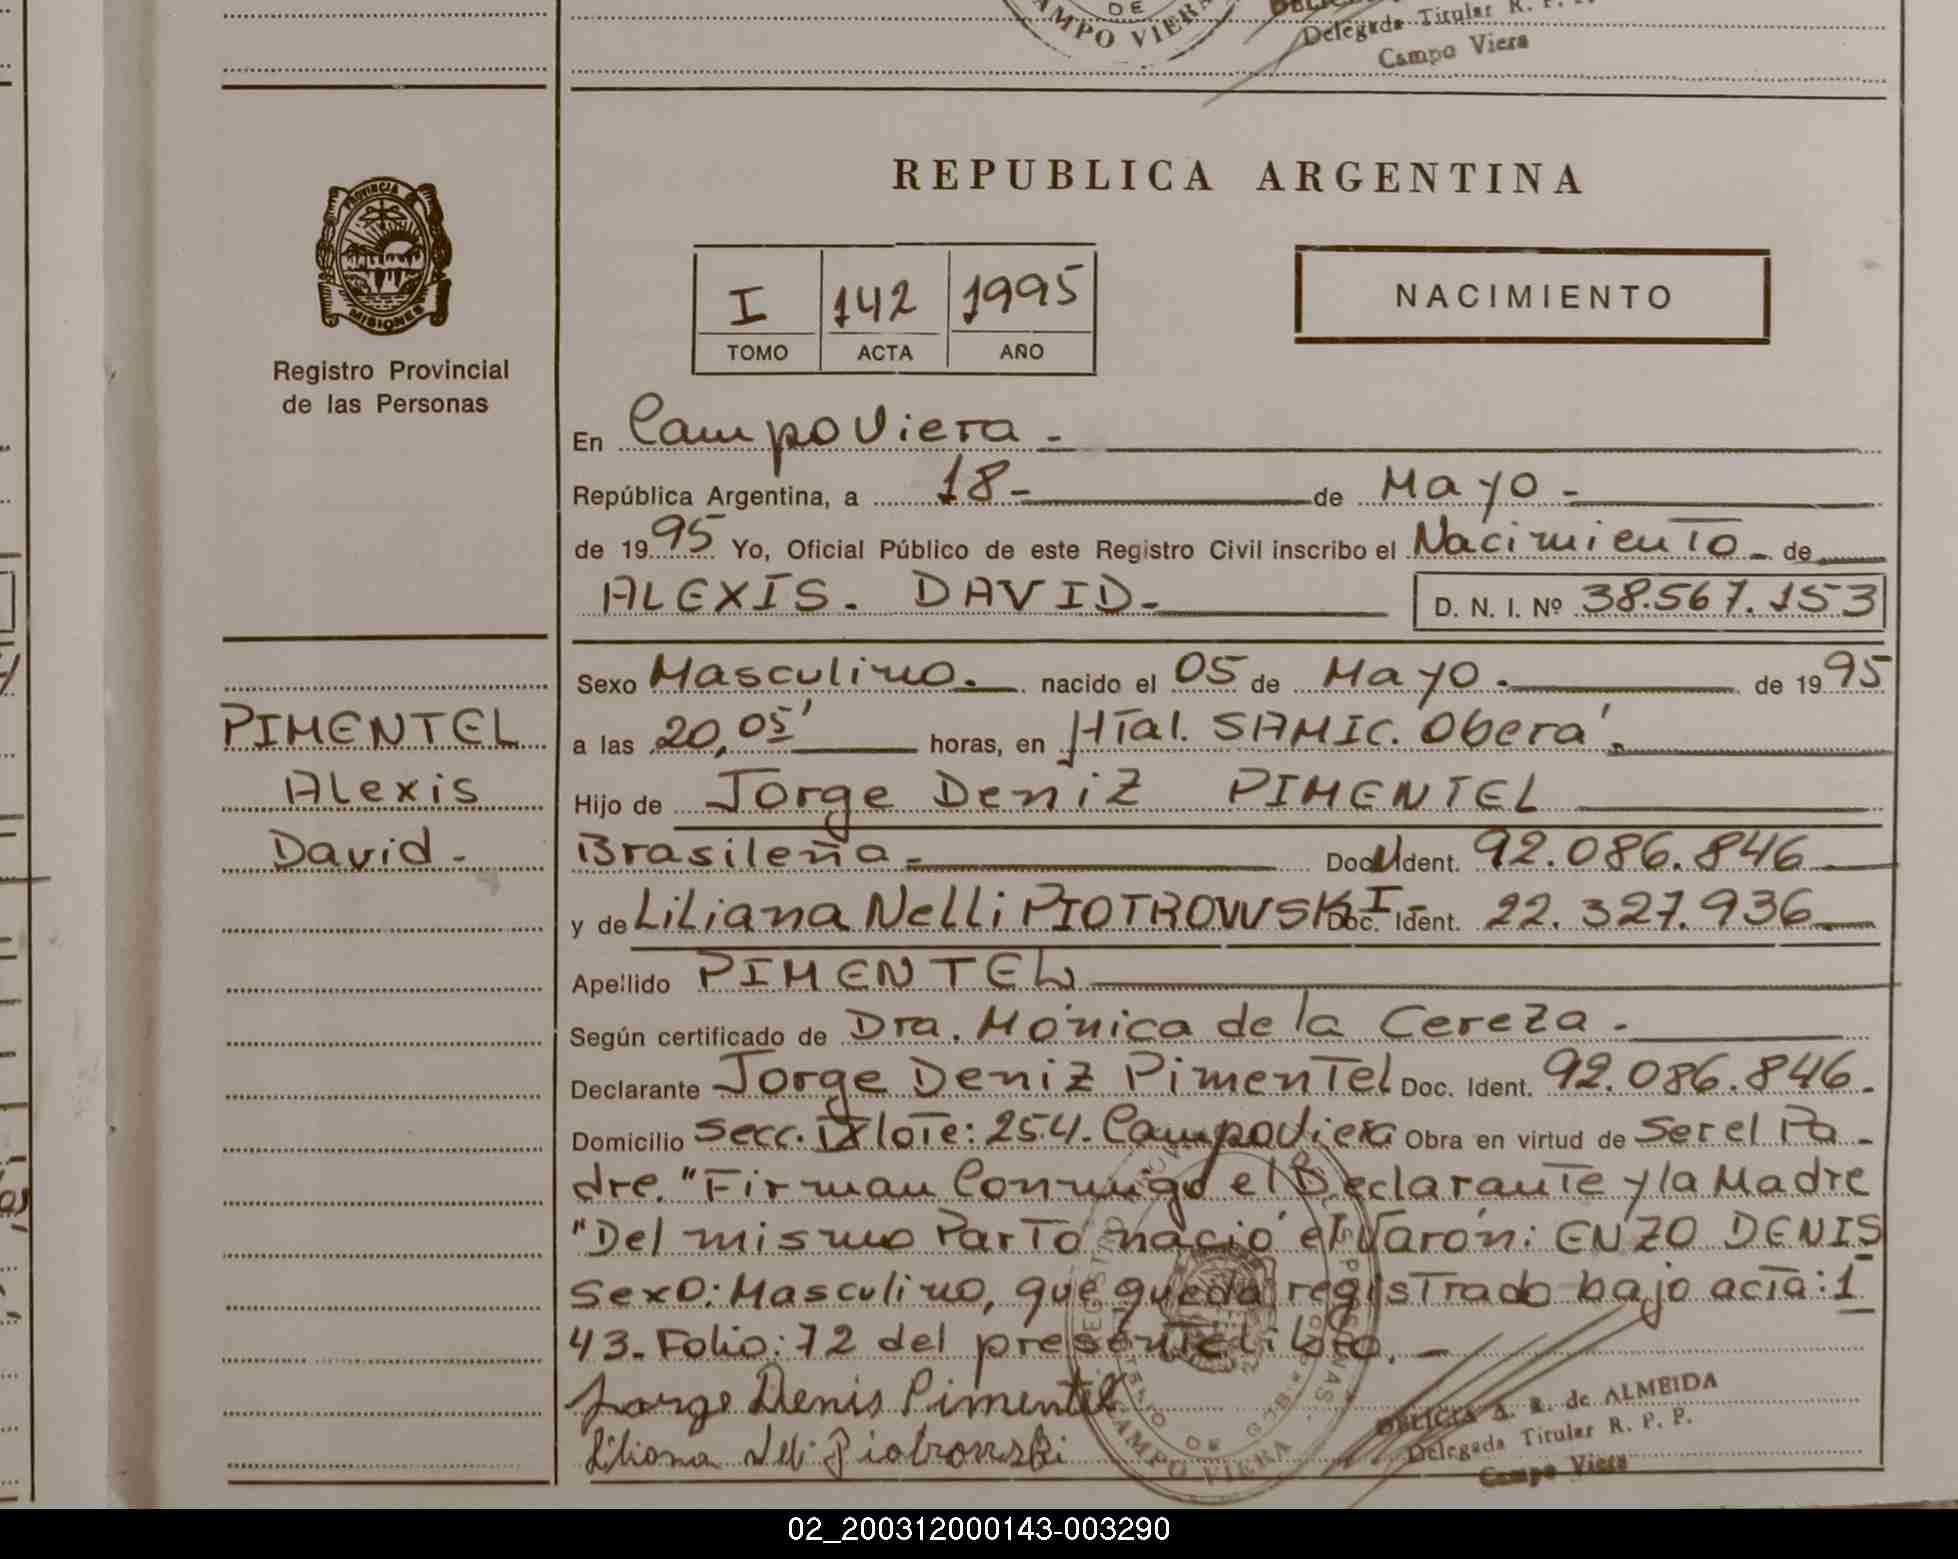 DE
CAMPO VIERA
Delegada Titular R. P. P.
Campo Viera
PROVINCIA
MISIONES
Registro Provincial
de las Personas
REPUBLICA ARGENTINA
I 142 1995
TOMO ACTA AÑO
NACIMIENTO
En Campo Viera -
República Argentina, a 18 - de Mayo -
de 1995 Yo, Oficial Público de este Registro Civil inscribo el Nacimiento - de
ALEXIS. DAVID - D. N. I. Nº 38.567.153
Sexo Masculino. nacido el 05 de Mayo. de 1995
a las 20,05' horas, en Htal. SAMIC. Oberá.
Hijo de Jorge Deniz PIMENTEL
Brasileña - Doc. U Ident. 92.086.846
y de Liliana Nelli PIOTROWSKI - Doc. Ident. 22.327.936
Apellido PIMENTEL
Según certificado de Dra. Mónica de la Cereza.
Declarante Jorge Deniz Pimentel Doc. Ident. 92.086.846.
Domicilio Secc. IX lote: 254. Campo Viera Obra en virtud de Ser el Pa -
dre. "Firman Conmigo el Declarante y la Madre
"Del mismo Parto nació el Varón: ENZO DENIS
Sexo: Masculino, que queda registrado bajo acta: 1
43. Folio: 72 del presente libro. -
Jorge Denis Pimentel
Liliana Nelli Piotrowski
PIMENTEL
Alexis
David -
CAMPO VIERA
DELICIA A. R. de ALMEIDA
Delegada Titular R. P. P.
Campo Viera
02_200312000143-003290